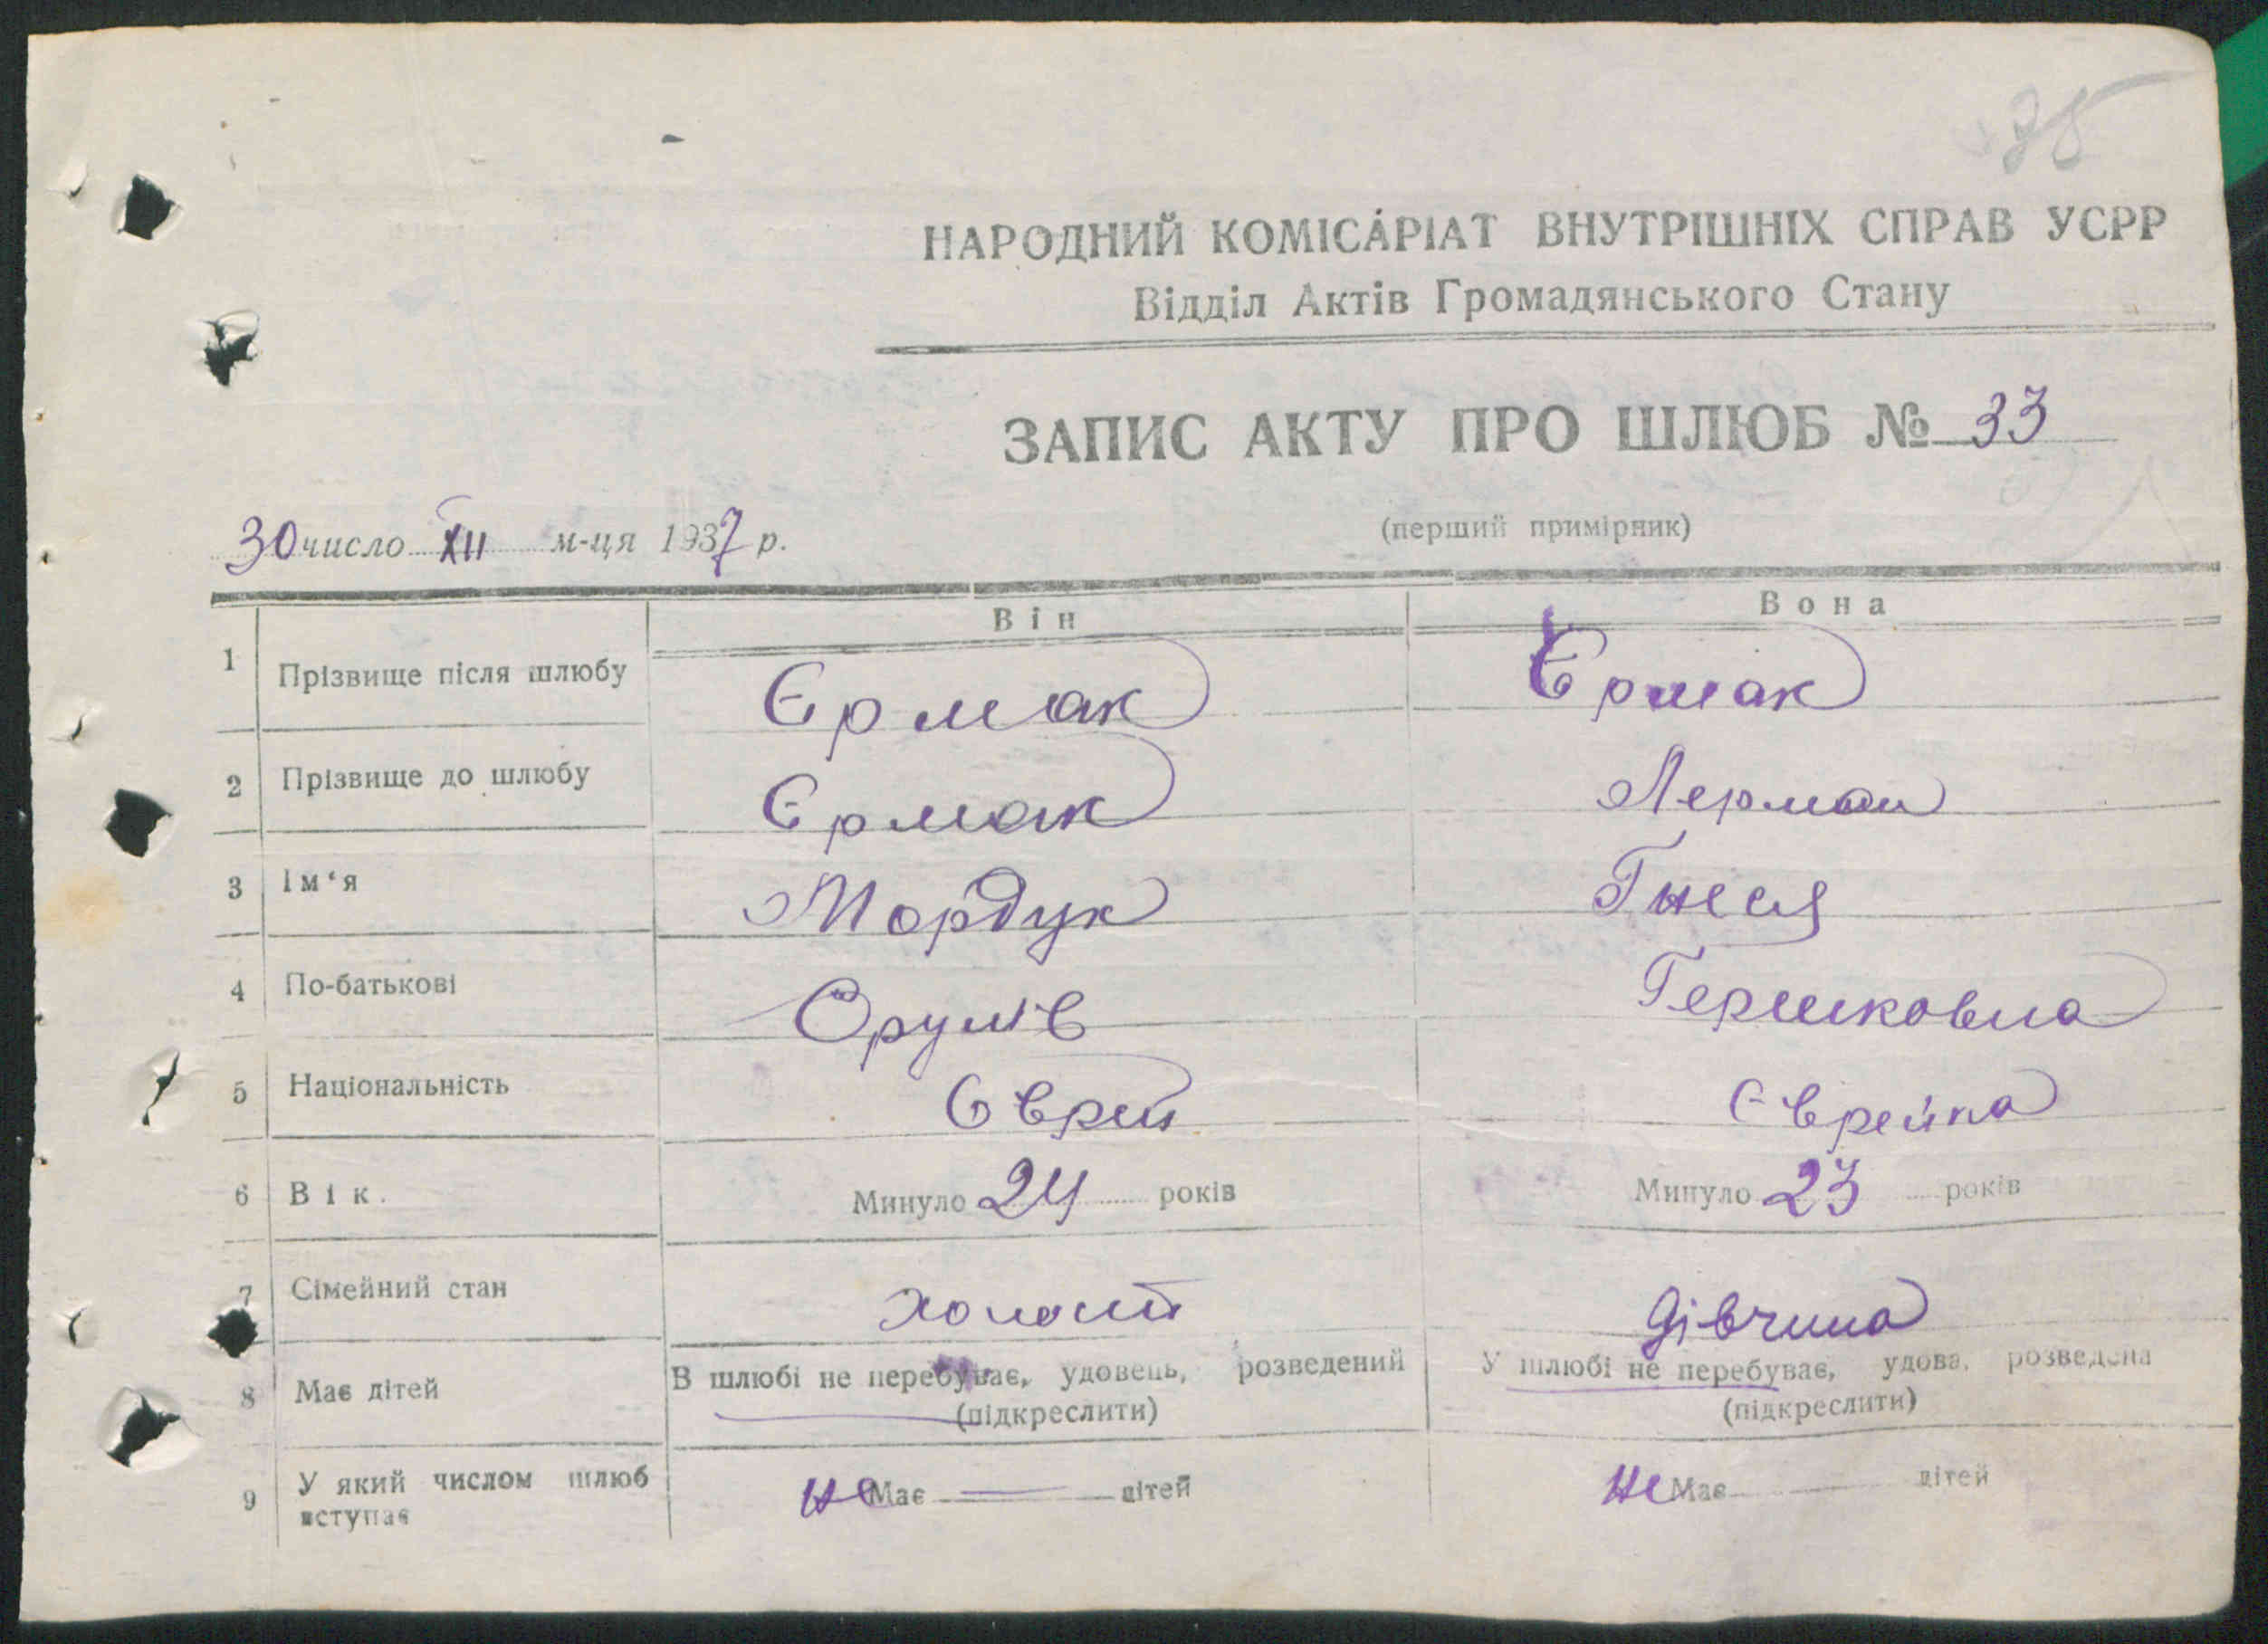 38
НАРОДНИЙ КОМІСАРІАТ ВНУТРІШНІХ СПРАВ УСРР
Відділ Актів Громадянського Стану
ЗАПИС АКТУ ПРО ШЛЮБ № 33
(перший примірник)
30 число XII м-ця 1937 р.
Він Вона
1 Прізвище після шлюбу Єрмак Єрмак
2 Прізвище до шлюбу Єрмак Лерман
3 Ім‘я Мордук Гнеся
4 По-батькові Срулів Гершковна
5 Національність Єврей Єврейка
6 Вік. Минуло 24 років Минуло 23 років
7 Сімейний стан холост дівчина
8 Має дітей В шлюбі не перебуває, удовець, розведений У шлюбі не перебуває, удова, розведена
(підкреслити) (підкреслити)
9 У який числом шлюб вступає не Має — дітей не Має — дітей